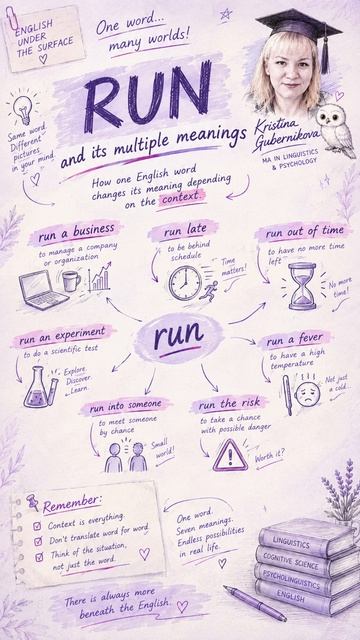 ENGLISH
UNDER
THE SURFACE
One word...
many worlds!
Same word.
Different
pictures
in your mind.
RUN
and its multiple meanings
How one English word
changes its meaning depending
on the context.
Kristina
Gubernikova
MA IN LINGUISTICS
& PSYCHOLOGY
run a business
to manage a company
or organization
run late
to be behind
schedule
Time
matters!
run out of time
to have no more time
left
No more
time!
run
run an experiment
to do a scientific test
Explore.
Discover.
Learn.
run a fever
to have a high
temperature
Not just
a cold...
run into someone
to meet someone
by chance
Small
world!
run the risk
to take a chance
with possible danger
Worth it?
Remember:
Context is everything.
Don't translate word for word.
Think of the situation,
not just the word.
One word.
Seven meanings.
Endless possibilities
in real life.
LINGUISTICS
COGNITIVE SCIENCE
PSYCHOLINGUISTICS
ENGLISH
There is always more
beneath the English.